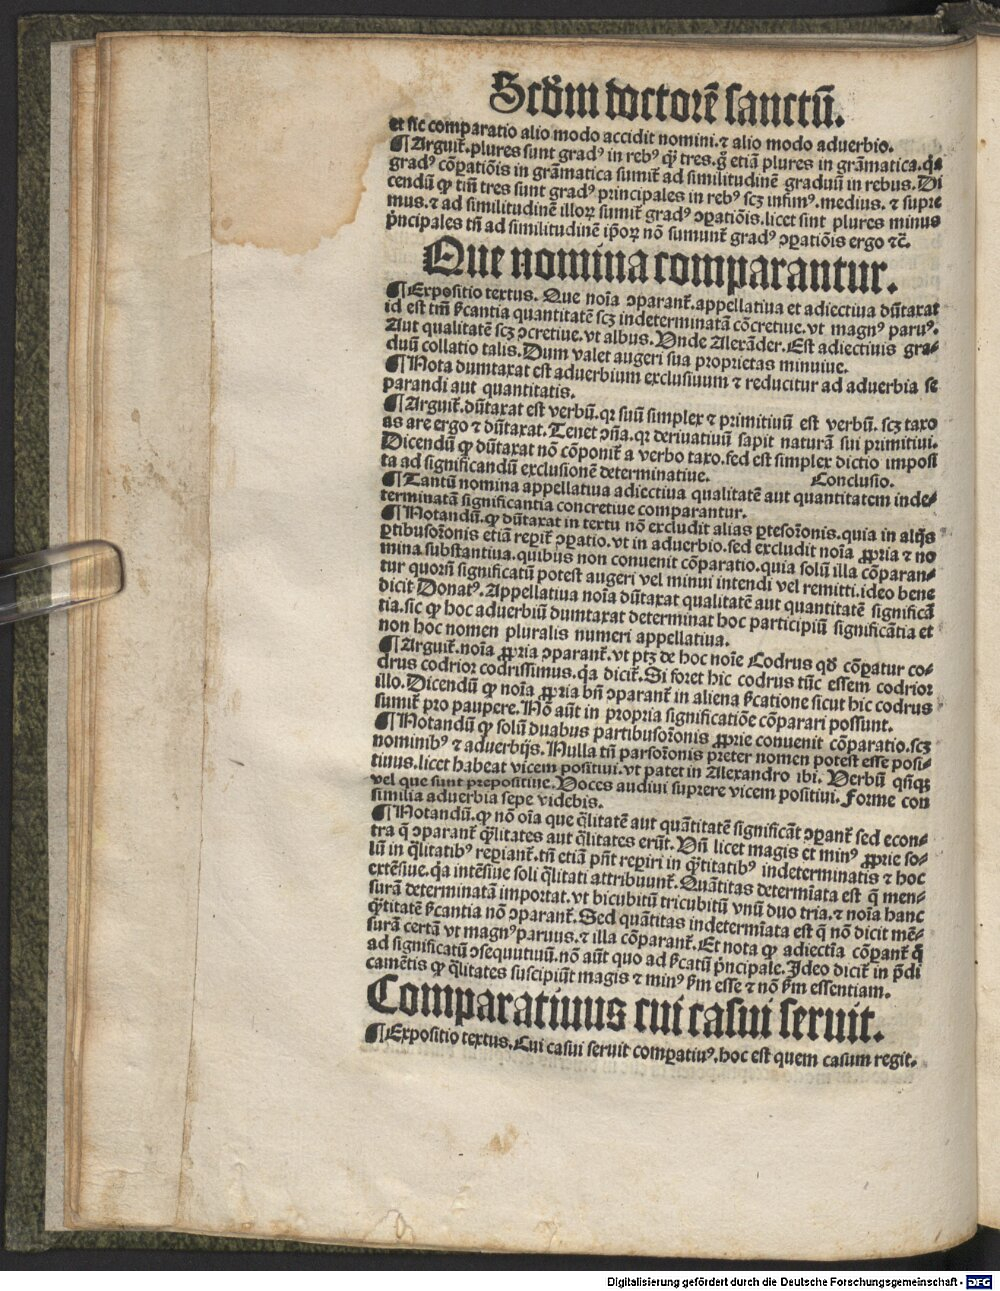 Scdm doctorē sanctū.
et sic comparatio alio modo accidit nomini. ⁊ alio modo adverbio.
¶ Arguit̄. plures sunt gradꝰ in rebꝰ qꝫ tres. g̊ etiā plures in grāmatica. qꝛ
gradꝰ cōꝑatiōis in grāmatica sumit̄ ad similitudinē graduū in rebus. Di
cendū ꝙ tm̄ tres sunt gradꝰ principales in rebꝰ scꝫ infimꝰ. medius. ⁊ supre
mus. ⁊ ad similitudinē illoꝝ sumit̄ gradꝰ ↄꝑatiōis. licet sint plures minus
pͥncipales tn̄ ad similitudinē ip̄oꝝ nō sumunt̄ gradꝰ ↄꝑatiōis ergo ⁊c̄.
Que nomina comparantur.
¶ Expositio textus. Que noīa ↄparant̄. appellatiua et adiectiua dūtaxat
id est tm̄ ſͥcantia quantitatē scꝫ indeterminatā cōcretiue. vt magnꝰ paruꝰ.
Aut qualitatē scꝫ ↄcretiue. vt albus. Vnde Alexāder. Est adiectiuis gra-
duū collatio talis. Dum valet augeri sua proprietas minuiue.
¶ Nota dumtaxat est adverbium exclusiuum ⁊ reducitur ad adverbia se
parandi aut quantitatis.
¶ Arguit̄. dūtaxat est verbū. qꝛ suū simplex ⁊ primitiuū est verbū. scꝫ taxo
as are ergo ⁊ dūtaxat. Tenet ↄn̄a. qꝛ deriuatiuū sapit naturā sui primitiui.
Dicendū ꝙ dūtaxat nō cōponit̄ a verbo taxo. sed est simplex dictio imposi
ta ad significandū exclusionē determinatiue. Conclusio.
¶ Tantū nomina appellatiua adiectiua qualitatē aut quantitatem inde-
terminatā significantia concretiue comparantur.
¶ Notandū. ꝙ dūtaxat in textu nō excludit alias ꝑtesor̄onis. quia in alijs
ꝑtibusor̄onis etiā reꝑit̄ ↄꝑatio. vt in adverbio. sed excludit noīa ꝓpria ⁊ no
mina substantiua. quibus non conuenit cōparatio. quia solū illa cōparan-
tur quorū significatū potest augeri vel minui intendi vel remitti. ideo bene
dicit Donatꝰ. Appellatiua noīa dūtaxat qualitatē aut quantitatē significā
tia. sic ꝙ hoc adverbiū dumtaxat determinat hoc participiū significātia et
non hoc nomen pluralis numeri appellatiua.
¶ Arguit̄. noīa ꝓpria ↄparant̄. vt ptꝫ de hoc noīe Codrus qd̄ cōꝑatur co-
drus codrior codrissimus. qꝛ dicit̄. Si foret hic codrus tūc essem codrior
illo. Dicendū ꝙ noīa ꝓpria bn̄ ↄparant̄ in aliena ſͥcatione sicut hic codrus
sumit̄ pro paupere. Nō aūt in propria significatiōe cōparari possunt.
¶ Notandū ꝙ solū duabus partibusor̄onis ꝓprie conuenit cōparatio. scꝫ
nominibꝰ ⁊ aduerbijs. Nulla tn̄ parsor̄onis preter nomen potest esse posi-
tiuus. licet habeat vicem positiui. vt patet in Alexandro ibi. Verbū qn̄qꝫ
vel que sunt prepositiue. Voces audiui suprere vicem positiui. Forme con
similia aduerbia sepe videbis.
¶ Notandū. ꝙ nō oīa que q̄litatē aut quātitatē significāt ↄꝑant̄ sed econ-
tra q̄ ↄparant̄ q̄litates aut q̄litates erūt. Vn̄ licet magis et minꝰ ꝓprie so-
lū in q̄litatibꝰ reꝑiant̄. tn̄ etiā pn̄t reꝑiri in q̄titatibꝰ indeterminatis ⁊ hoc
extēsiue. qꝛ intēsiue soli q̄litati attribuunt̄. Quātitas determīata est q̄ men-
surā determinatā importat. vt bicubitū tricubitū vnū duo tria. ⁊ noīa hanc
q̄titatē ſͥcantia nō ↄparant̄. Sed quātitas indetermīata est q̄ nō dicit mē-
surā certā vt magnꝰ paruus. ⁊ illa cōparant̄. Et nota ꝙ adiectīa cōꝑant̄ q̄
ad significatū ↄsequutiuū. nō aūt quo ad ſͥcatū pͥncipale. Ideo dicit̄ in p̄di
camētis ꝙ q̄litates suscipiūt magis ⁊ minꝰ ẜm esse ⁊ nō ẜm essentiam.
Comparatiuus cui casui seruit.
¶ Expositio textus. Cui casui seruit comꝑatiuꝰ. hoc est quem casum regit.
Digitalisierung gefördert durch die Deutsche Forschungsgemeinschaft - DFG